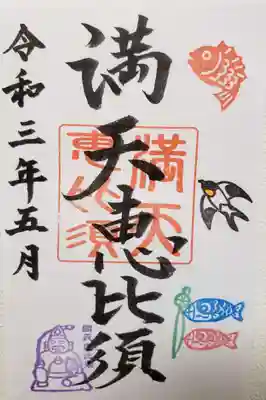 満天恵比須
令和三年五月
満天
恵比須